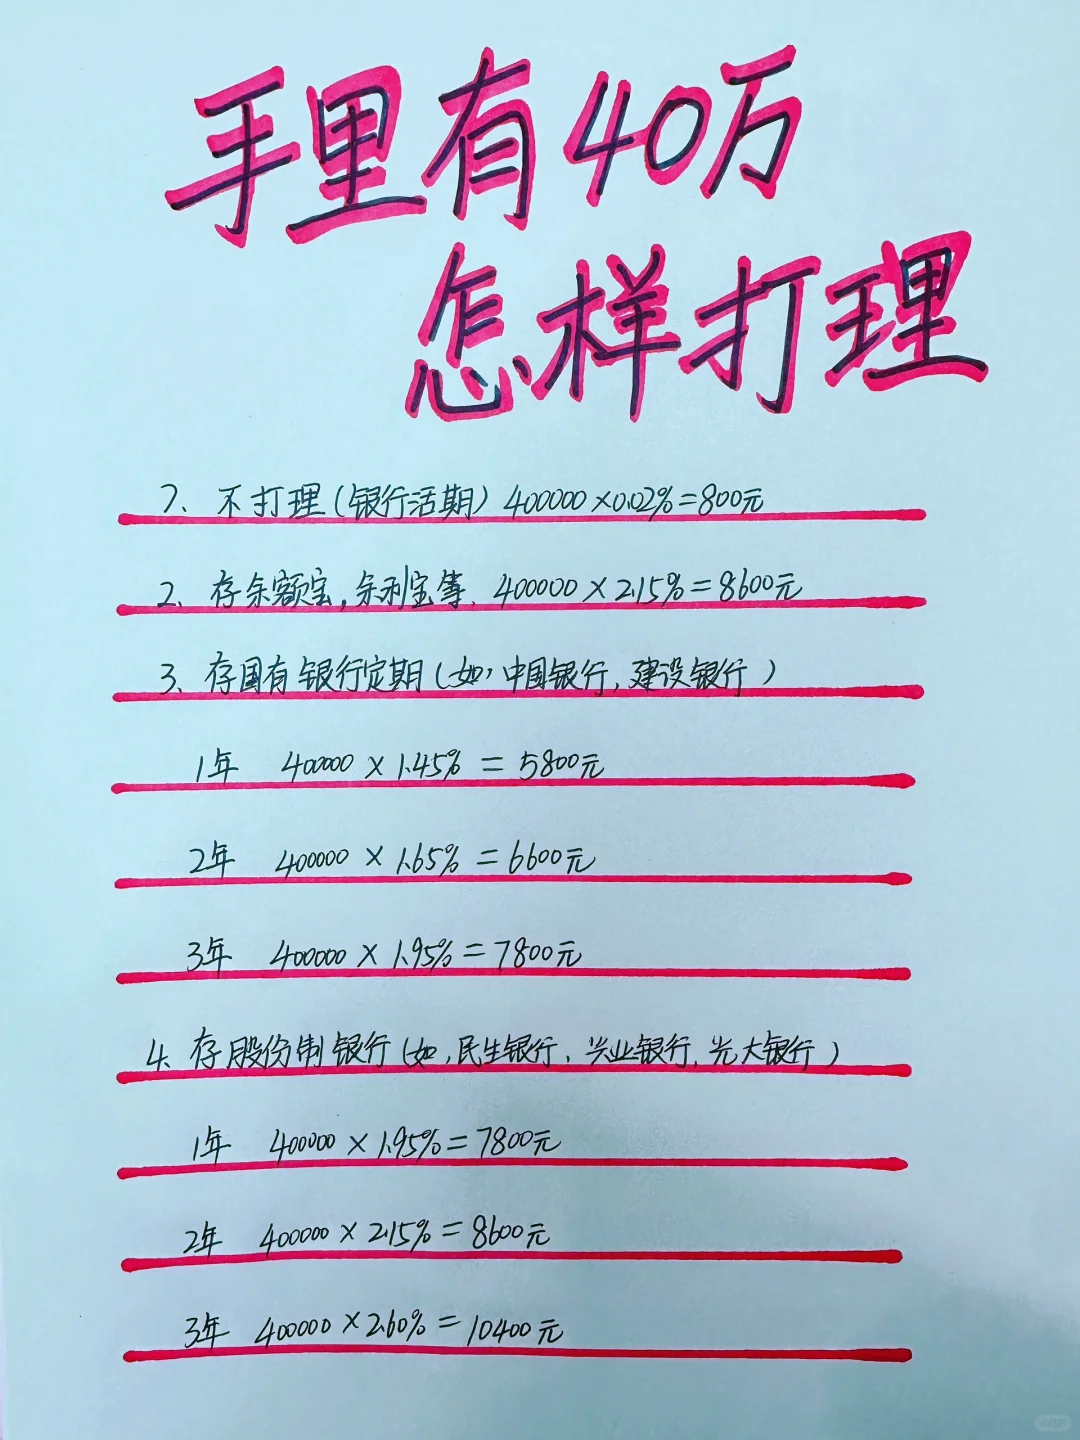 手里有40万
怎样打理
1、不打理(银行活期)400000×0.02%=800元
2、存余额宝,余利宝等、400000×2.15%=8600元
3、存国有银行定期(如,中国银行,建设银行)
1年 400000×1.45%=5800元
2年 400000×1.65%=6600元
3年 400000×1.95%=7800元
4、存股份制银行(如,民生银行、兴业银行,光大银行)
1年 400000×1.95%=7800元
2年 400000×2.15%=8600元
3年 400000×2.60%=10400元